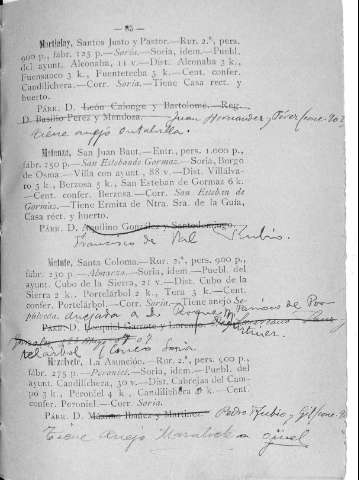 — 85 —
Martialay, Santos Justo y Pastor.—Rur. 2.ª, pers.
900 p., fábr. 125 p.—Soria.—Soria, idem.—Puebl.
del ayunt. Alconaba, 11 v.—Dist. Alconaba 3 k.,
Fuensauco 3 k., Fuentetecha 5 k.—Cent. confer.
Candilichera.—Corr. Soria.—Tiene Casa rect. y
huerto.
PÁRR. D. León Calonge y Bartolomé.—Reg.
D. Basilio Pérez y Mendoza. Juan Hernandez y
tiene anejo Ontalvilla.
San Juan Baut.—Entr., pers. 1.000 p.,
fábr. 250 p.—San Esteban de Gormaz.—Soria, Borgo
de Osma.—Villa con ayunt., 88 v.—Dist. Villálva-
ro 3 k., Berzosa 5 k., San Esteban de Gormaz 6 k.
—Cent. confer. Berzosa.—Corr. San Esteban de
Gormaz.—Tiene Ermita de Ntra. Sra. de la Guía,
Casa rect. y huerto.
PÁRR. D. Aquilino González y Santodomingo.
Francisco de Rubio.
Santa Coloma.—Rur. 2.ª, pers. 900 p.,
fábr. 230 p.—Almarza.—Soria, idem.—Puebl. del
ayunt. Cubo de la Sierra, 21 v.—Dist. Cubo de la
Sierra 2 k., Portelárbol 2 k., Tera 3 k.—Cent.
confer. Portelárbol.—Corr. Soria.—Tiene anejo Se-
púlveda. anejada a la
PÁRR. D. Ezequiel Garrote y Lorenzo.
telarbol Soria
La Asunción.—Rur. 2.ª, pers. 900 p.,
fábr. 275 p.—Peroniel.—Soria, idem.—Puebl. del
ayunt. Candilichera, 30 v.—Dist. Cabrejas del Cam-
po 3 k., Peroniel 4 k., Candilichera k.—Cent.
confer. Peroniel.—Corr. Soria.
PÁRR. D. Máximo Ibáñez y Martínez. Pedro Rubio y Gil
Tiene anejo